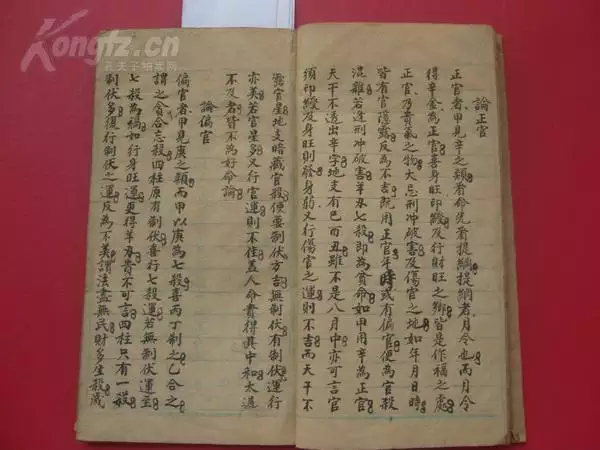 論正官
正官者甲見辛之類看命先看提綱提綱者月令也而月令
得辛金為正官喜身旺印綬及行財旺之鄉皆是作福之處
正官乃貴氣之物大忌刑冲破害及傷官之地如年月日時
皆有官隱露反為不吉既用正官年時或有偏官便為官殺
混雜若逢刑冲破害羊刃七殺即為貧命如甲用辛為正官
天干不透出辛字地支有巳酉丑雖不是八月中亦可言官
須印綬及身旺則發身弱又行傷官之運則不吉而天干不
露官星地支暗藏官殺便要制伏方吉無制伏有制伏運行
亦美若官星多又行官運則不佳蓋人命貴得其中和太過
不及者皆不為好命論
論偏官
偏官者甲見庚之類而甲以庚為七殺喜丙丁制之乙合之
謂之貪合忘殺四柱原有制伏喜行七殺運若無制伏運至
七殺為禍如行身旺運更得羊刃貴不可言四柱只有一殺
制伏多復行制伏之運反為不美謂法盡無民財多生殺歲
Kongfz.cn
孔夫子拍卖网